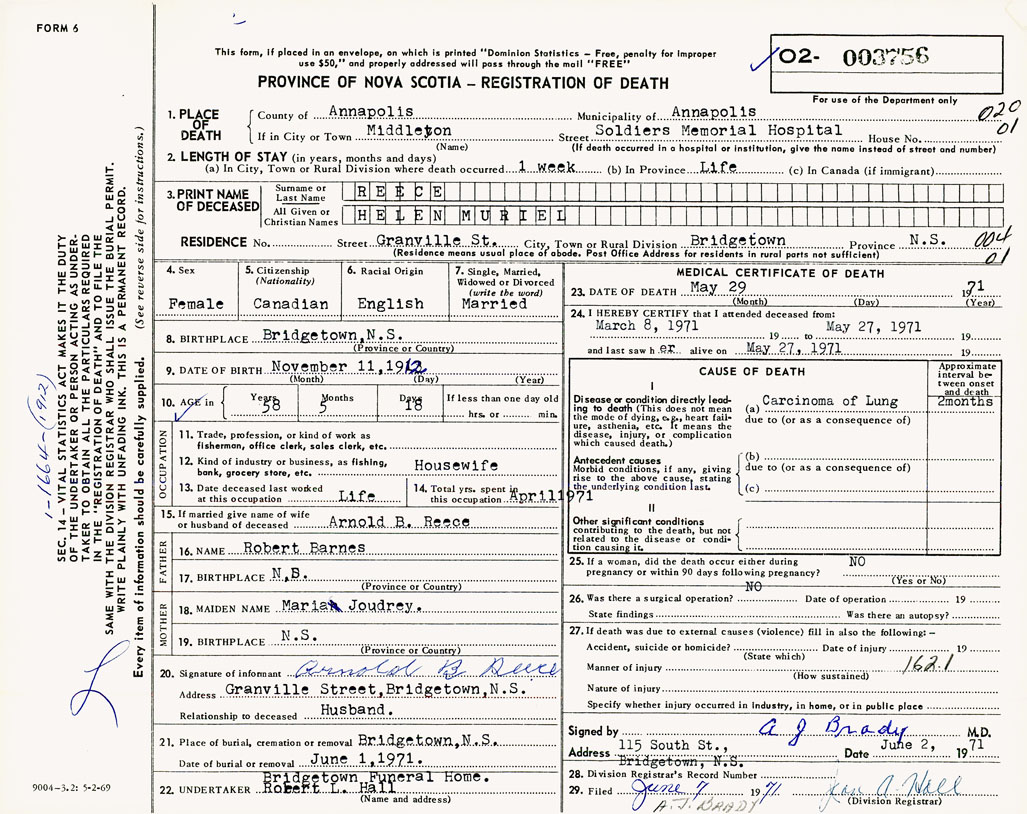 FORM 6
This form, if placed in an envelope, on which is printed "Dominion Statistics – Free, penalty for improper
use $50," and properly addressed will pass through the mail "FREE"
PROVINCE OF NOVA SCOTIA – REGISTRATION OF DEATH
02- 003756
For use of the Department only
1. PLACE OF DEATH
County of Annapolis Municipality of Annapolis 020
If in City or Town Middleton Street Soldiers Memorial Hospital House No. 01
(Name) (If death occurred in a hospital or institution, give the name instead of street and number)
2. LENGTH OF STAY (in years, months and days)
(a) In City, Town or Rural Division where death occurred 1 week (b) In Province Life (c) In Canada (if immigrant)
3. PRINT NAME OF DECEASED
Surname or Last Name REECE
All Given or Christian Names HELEN MURIEL
RESIDENCE No. Street Granville St. City, Town or Rural Division Bridgetown Province N.S. 004
(Residence means usual place of abode. Post Office Address for residents in rural parts not sufficient) 01
4. Sex
Female
5. Citizenship
(Nationality)
Canadian
6. Racial Origin
English
7. Single, Married,
Widowed or Divorced
(write the word)
Married
8. BIRTHPLACE Bridgetown,N.S.
(Province or Country)
9. DATE OF BIRTH November 11,1912
(Month) (Day) (Year)
10. AGE in Years 58 Months 5 Days 18 If less than one day old
hrs. or min.
OCCUPATION
11. Trade, profession, or kind of work as
fisherman, office clerk, sales clerk, etc.
12. Kind of industry or business, as fishing,
bank, grocery store, etc. Housewife
13. Date deceased last worked
at this occupation Life
14. Total yrs. spent in
this occupation April1971
15. If married give name of wife
or husband of deceased Arnold B. Reece
FATHER
16. NAME Robert Barnes
17. BIRTHPLACE N.B.
(Province or Country)
MOTHER
18. MAIDEN NAME Maria Joudrey.
19. BIRTHPLACE N.S.
(Province or Country)
20. Signature of informant Arnold B Reece
Address Granville Street,Bridgetown,N.S.
Relationship to deceased Husband.
21. Place of burial, cremation or removal Bridgetown,N.S.
Date of burial or removal June 1,1971.
Bridgetown Funeral Home.
22. UNDERTAKER Robert L. Hall
(Name and address)
MEDICAL CERTIFICATE OF DEATH
23. DATE OF DEATH May 29 1971
(Month) (Day) (Year)
24. I HEREBY CERTIFY that I attended deceased from:
March 8, 1971 19 to May 27, 1971 19
and last saw h er alive on May 27, 1971 19
CAUSE OF DEATH
Approximate
interval be-
tween onset
and death
I
Disease or condition directly lead-
ing to death (This does not
mean the mode of dying, e.g., heart fail-
ure, asthenia, etc. It means the
disease, injury, or complication
which caused death.)
(a) Carcinoma of Lung 2months
due to (or as a consequence of)
Antecedent causes
Morbid conditions, if any, giving
rise to the above cause, stating
the underlying condition last.
(b)
due to (or as a consequence of)
(c)
II
Other significant conditions
contributing to the death, but not
related to the disease or condi-
tion causing it.
25. If a woman, did the death occur either during
pregnancy or within 90 days following pregnancy? NO
(Yes or No)
26. Was there a surgical operation? NO Date of operation 19
State findings Was there an autopsy?
27. If death was due to external causes (violence) fill in also the following: –
Accident, suicide or homicide? Date of injury 19
(State which)
Manner of injury 162.1
(How sustained)
Nature of injury
Specify whether injury occurred in industry, in home, or in public place
Signed by A J Brady M.D.
Address 115 South St., Date June 2, 1971
Bridgetown, N.S.
28. Division Registrar's Record Number
29. Filed June 7 1971 Jean A. Hall
A.J. BRADY (Division Registrar)
1-1664-(1912)
SEC. 14 – VITAL STATISTICS ACT MAKES IT THE DUTY
OF THE UNDERTAKER OR PERSON ACTING AS UNDER-
TAKER TO OBTAIN ALL THE PARTICULARS REQUIRED
IN THE "REGISTRATION OF DEATH" AND TO FILE THE
SAME WITH THE DIVISION REGISTRAR WHO SHALL ISSUE THE BURIAL PERMIT.
WRITE PLAINLY WITH UNFADING INK. THIS IS A PERMANENT RECORD.
Every item of information should be carefully supplied. (See reverse side for instructions.)
9004-3.2: 5-2-69